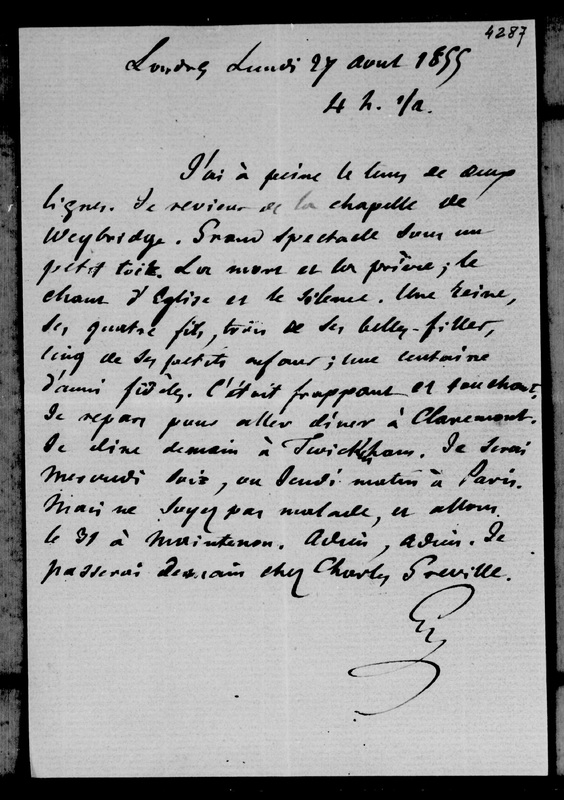 4287
Londres Lundi 27 août 1855
4 h. 1/2.
J'ai à peine le tems de deux
lignes. Je reviens de la chapelle de
Weybridge. Grand spectacle sous un
petit toit. La mort et la prière ; le
chant d'Eglise et le silence. Une reine,
ses quatre fils, trois de ses belles-filles,
cinq de ses petits enfans ; une centaine
d'amis fidèles. C'était frappant et touchant.
Je repars pour aller diner à Claremont.
Je dine demain à Twickham. Je serai
mercredi soir, ou Jeudi matin à Paris.
Mais ne soyez pas malade, et allons
le 31 à Maintenon. Adieu, adieu. Je
passerai demain chez Charles Greville.